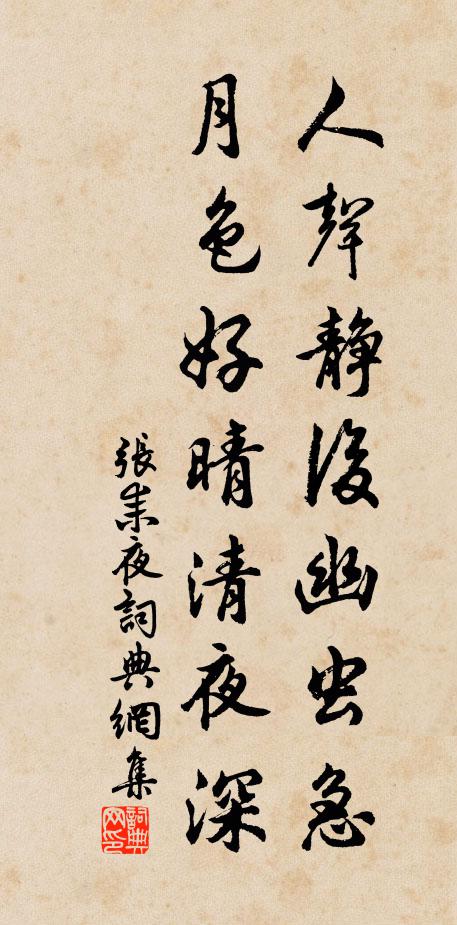 人聲靜後幽虫急
月色好晴清夜深
張耒夜詞典網集
詞典网印